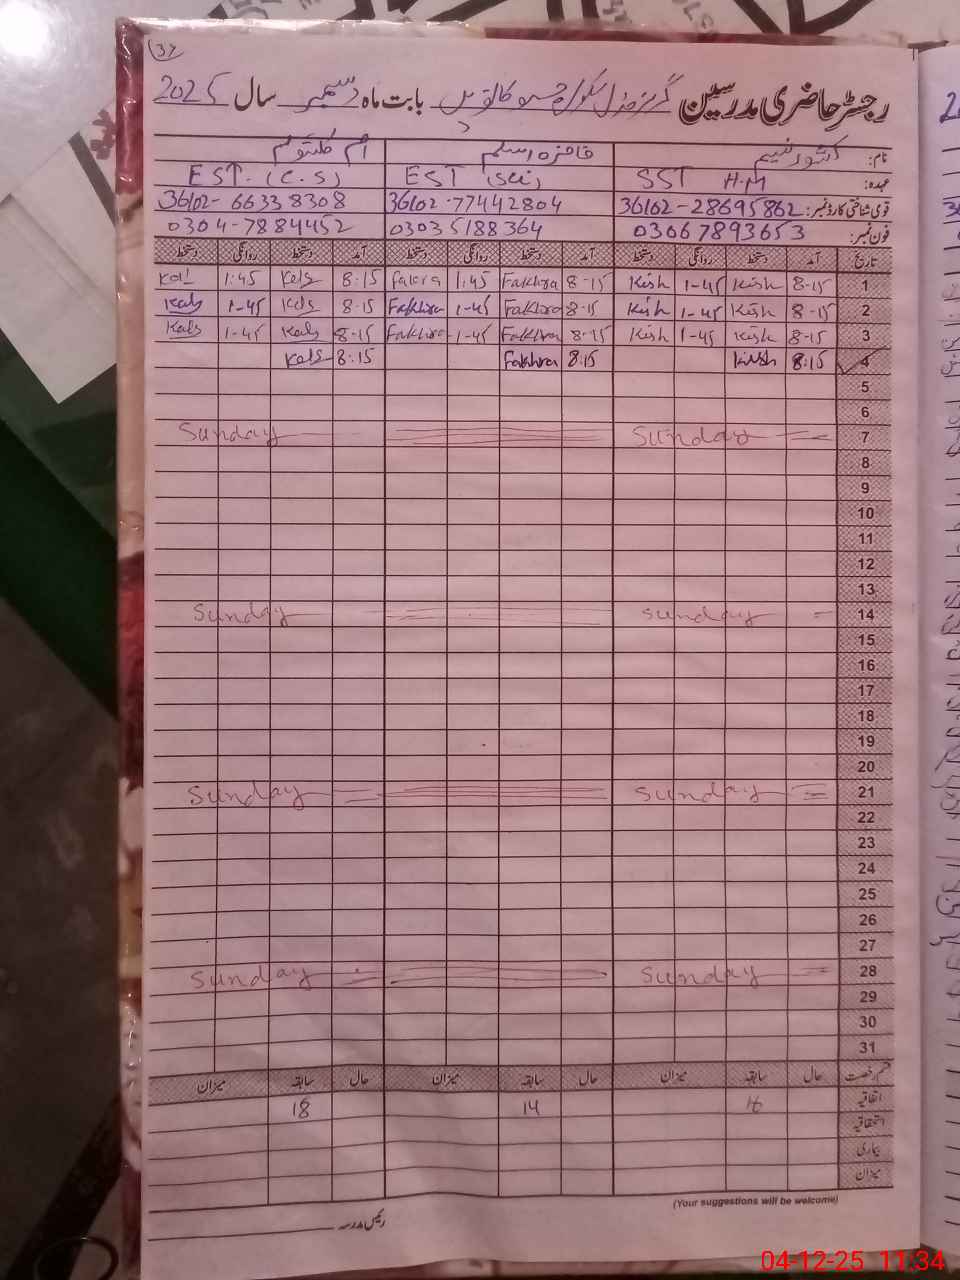 37
رجسٹر حاضری مدرسین گرلز مڈل سکول بابت ماہ دسمبر سال 2025
نام: کشور نسیم فاخرہ اسلم ام کلثوم
عہدہ: SST H.M EST (Sci) EST. (C.S)
قومی شناختی کارڈ نمبر: 36102-28695862 36102-77442804 36102-66338308
فون نمبر: 03067893653 03035188364 0304-7884452
تاریخ آمد دستخط روانگی دستخط آمد دستخط روانگی دستخط آمد دستخط روانگی دستخط
1 8-15 Kish 1-45 Kish 8-15 Fakhra 1:45 Fakhra 8:15 Kals 1:45 Kals
2 8-15 Kish 1-45 Kish 8-15 Fakhra 1-45 Fakhra 8-15 Kals 1-45 Kals
3 8-15 Kish 1-45 Kish 8-15 Fakhra 1-45 Fakhra 8-15 Kals 1-45 Kals
4 8:15 Kish 8:15 Fakhra 8:15 Kals
5
6
7 Sunday Sunday
8
9
10
11
12
13
14 Sunday Sunday
15
16
17
18
19
20
21 Sunday Sunday
22
23
24
25
26
27
28 Sunday Sunday
29
30
31
قسم رخصت حال سابقہ میزان حال سابقہ میزان حال سابقہ میزان
اتفاقیہ 16 14 18
استحقاقیہ
بیماری
میزان
(Your suggestions will be welcome)
رئیس مدرسہ
04-12-25 11:34